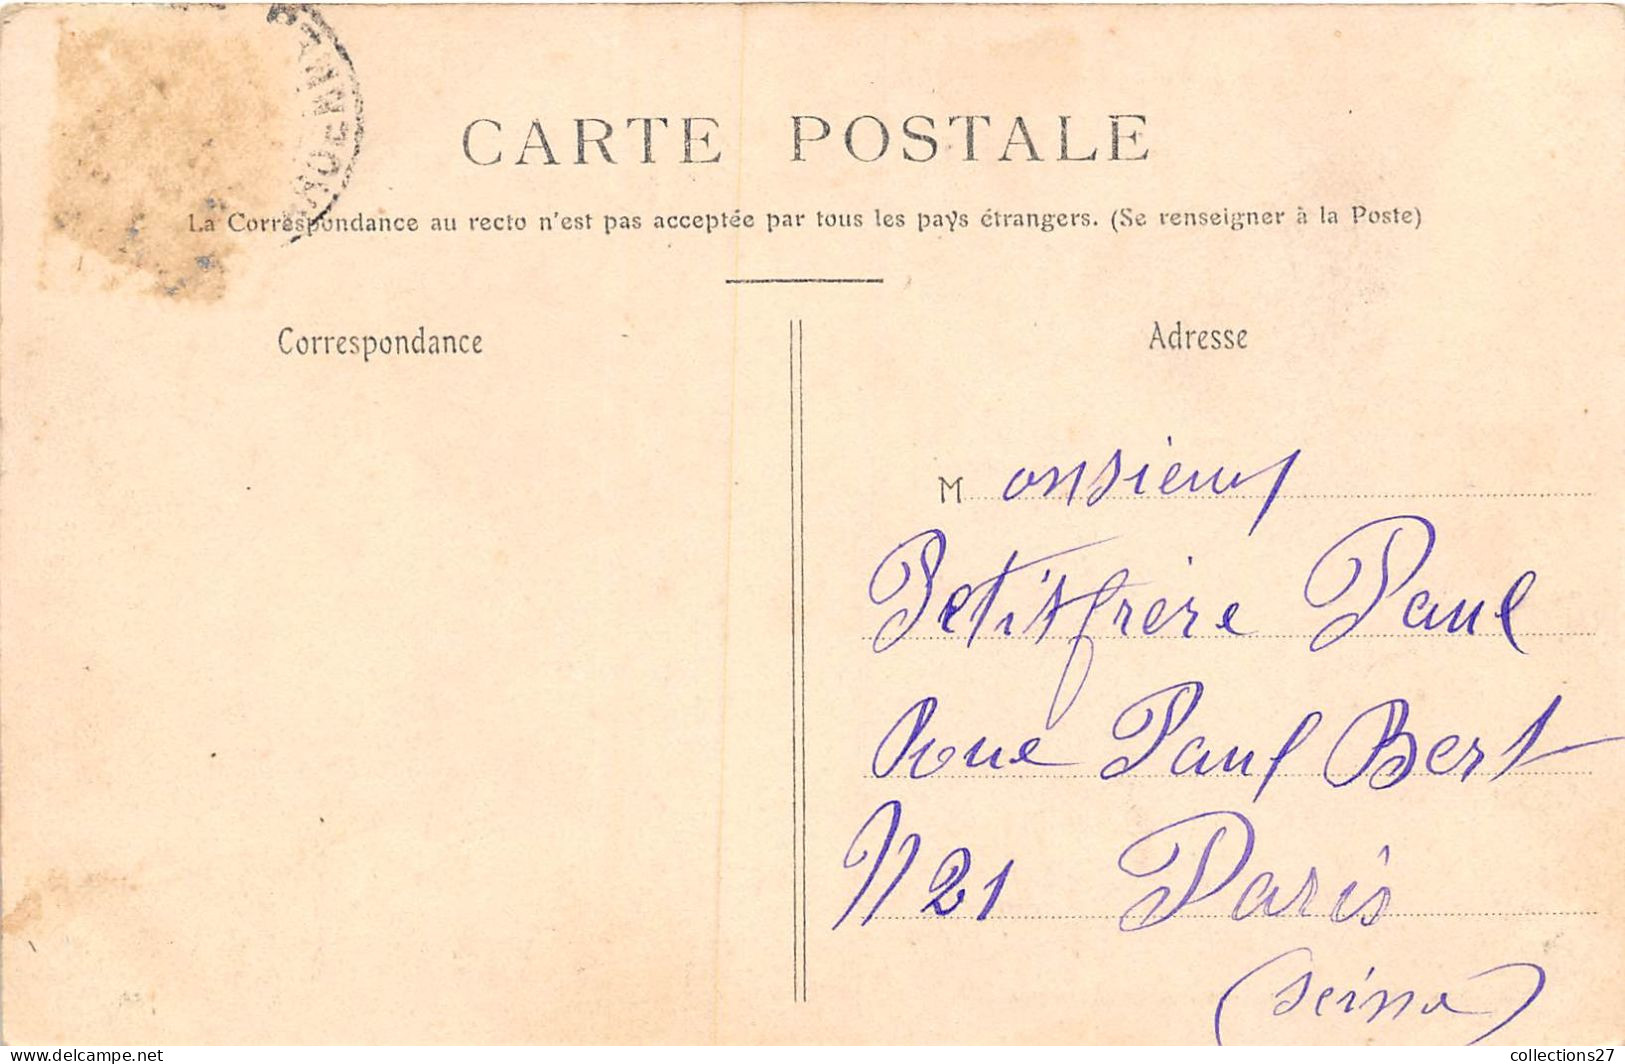 CARTE POSTALE
La Correspondance au recto n'est pas acceptée par tous les pays étrangers. (Se renseigner à la Poste)
Correspondance
Adresse
Monsieur
Petitfrère Paul
Rue Paul Bert
N 21 Paris
(Seine)
collections27